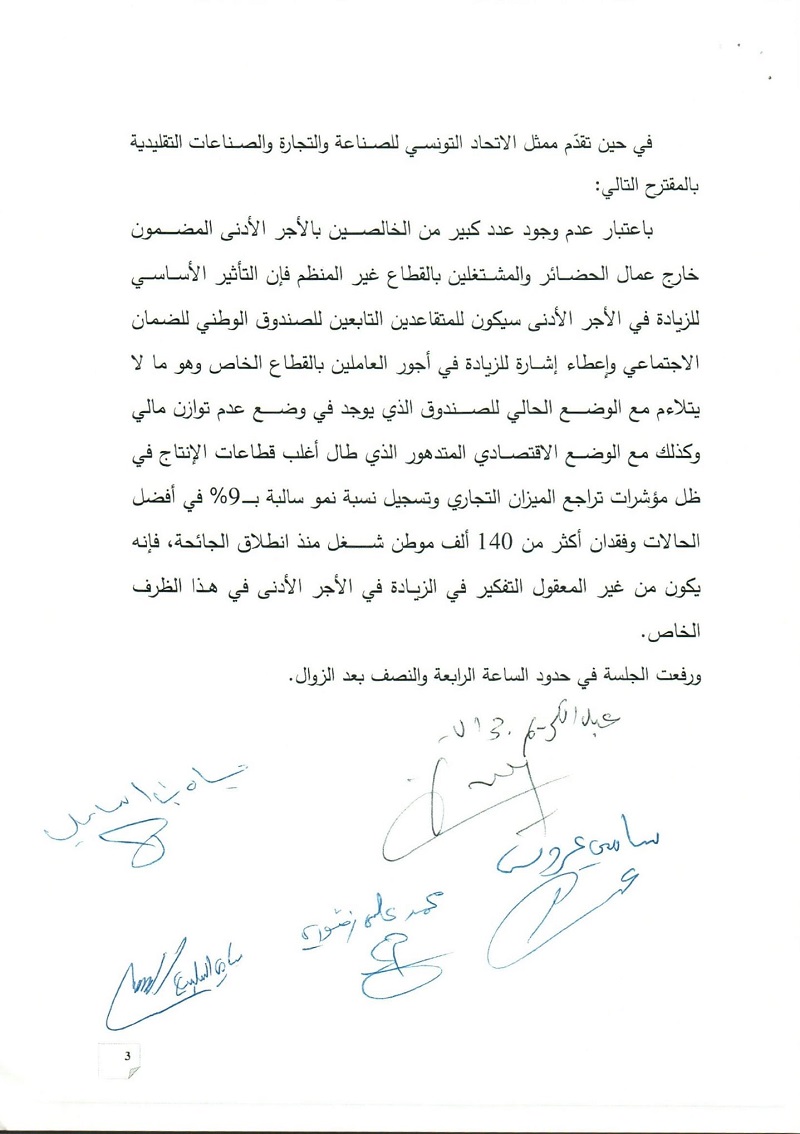 في حين تقدّم ممثل الاتحاد التونسي للصناعة والتجارة والصناعات التقليدية
بالمقترح التالي:
باعتبار عدم وجود عدد كبير من الخالصين بالأجر الأدنى المضمون
خارج عمال الحضائر والمشتغلين بالقطاع غير المنظم فإن التأثير الأساسي
للزيادة في الأجر الأدنى سيكون للمتقاعدين التابعين للصندوق الوطني للضمان
الاجتماعي وإعطاء إشارة للزيادة في أجور العاملين بالقطاع الخاص وهو ما لا
يتلاءم مع الوضع الحالي للصندوق الذي يوجد في وضع عدم توازن مالي
وكذلك مع الوضع الاقتصادي المتدهور الذي طال أغلب قطاعات الإنتاج في
ظل مؤشرات تراجع الميزان التجاري وتسجيل نسبة نمو سالبة بـ9% في أفضل
الحالات وفقدان أكثر من 140 ألف موطن شغل منذ انطلاق الجائحة، فإنه
يكون من غير المعقول التفكير في الزيادة في الأجر الأدنى في هذا الظرف
الخاص.
ورفعت الجلسة في حدود الساعة الرابعة والنصف بعد الزوال.
عبد الكريم
سامي
محمد علي
3